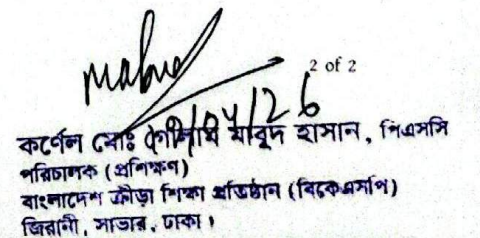 2 of 2
কর্ণেল মোঃ মাবুদ হাসান, পিএসসি
পরিচালক (প্রশিক্ষণ)
বাংলাদেশ ক্রীড়া শিক্ষা প্রতিষ্ঠান (বিকেএসপি)
জিরানী, সাভার, ঢাকা।